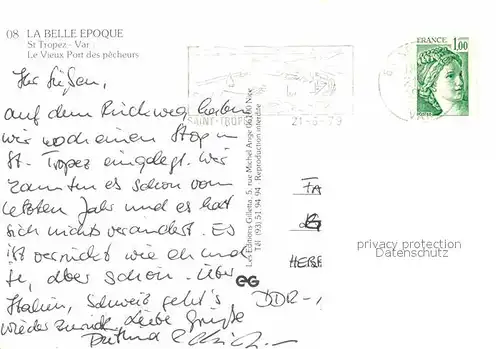 08 LA BELLE EPOQUE
St Tropez - Var
Le Vieux Port des pêcheurs
Ihr Süßen,
auf dem Rückweg haben
wir noch einen Stop in
St-Tropez eingelegt. Wir
kannten es schon vom
letzten Jahr und es hat
sich nichts verändert. Es
ist verrückt wie eh und
je, aber schön. Über
Italien, Schweiz geht's
wieder zurück. Liebe Grüße
SAINT-TROPEZ
21-6-79
FRANCE
1,00
Les Editions Gilletta, 5, rue Michel Ange 06100 Nice
Tél (93) 51 94 94 Reproduction interdite
EG
FA
HERBE
DDR-
privacy protection
Datenschutz